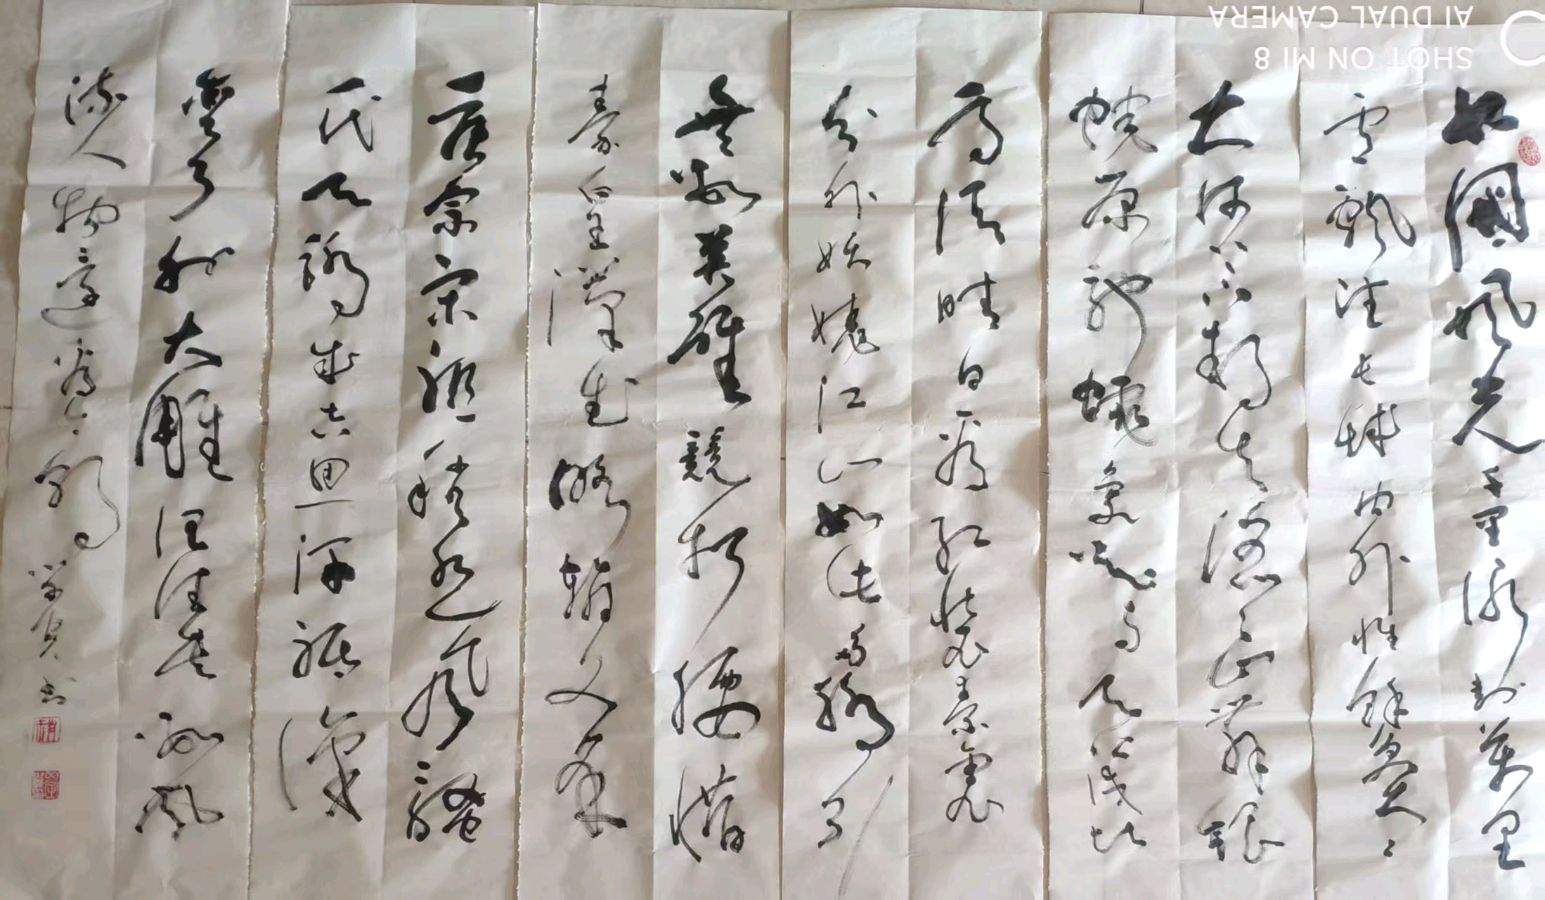 北国风光千里冰封万里
雪飘望长城内外惟余莽〻
大河上下顿失滔〻山舞银
蛇原驰蜡象欲与天公试比
高须晴日看红装素裹
分外妖娆江山如此多娇引
无数英雄竞折腰惜
秦皇汉武略输文采
唐宗宋祖稍逊风骚
一代天骄成吉思汗只识
弯弓射大雕俱往矣数风
流人物还看今朝
书
SHOT ON MI 8
AI DUAL CAMERA